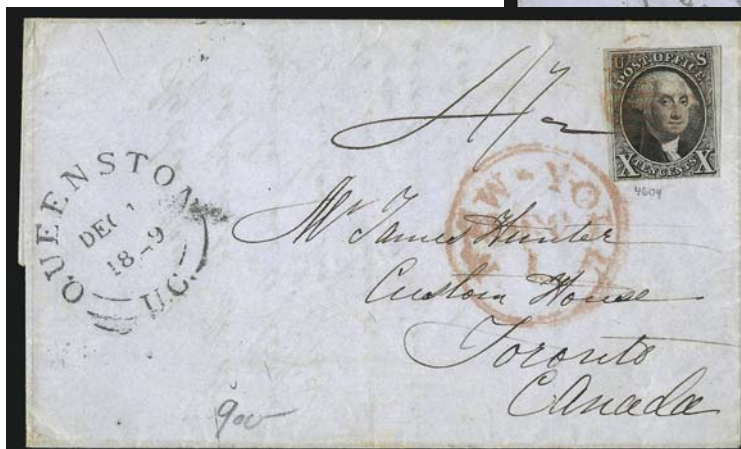 U S
POST OFFICE
X TEN CENTS X
4604
QUEENSTON
DEC
U.C.
NEW-YORK
1
Mr James Hunter
Custom House
Toronto
Canada
900